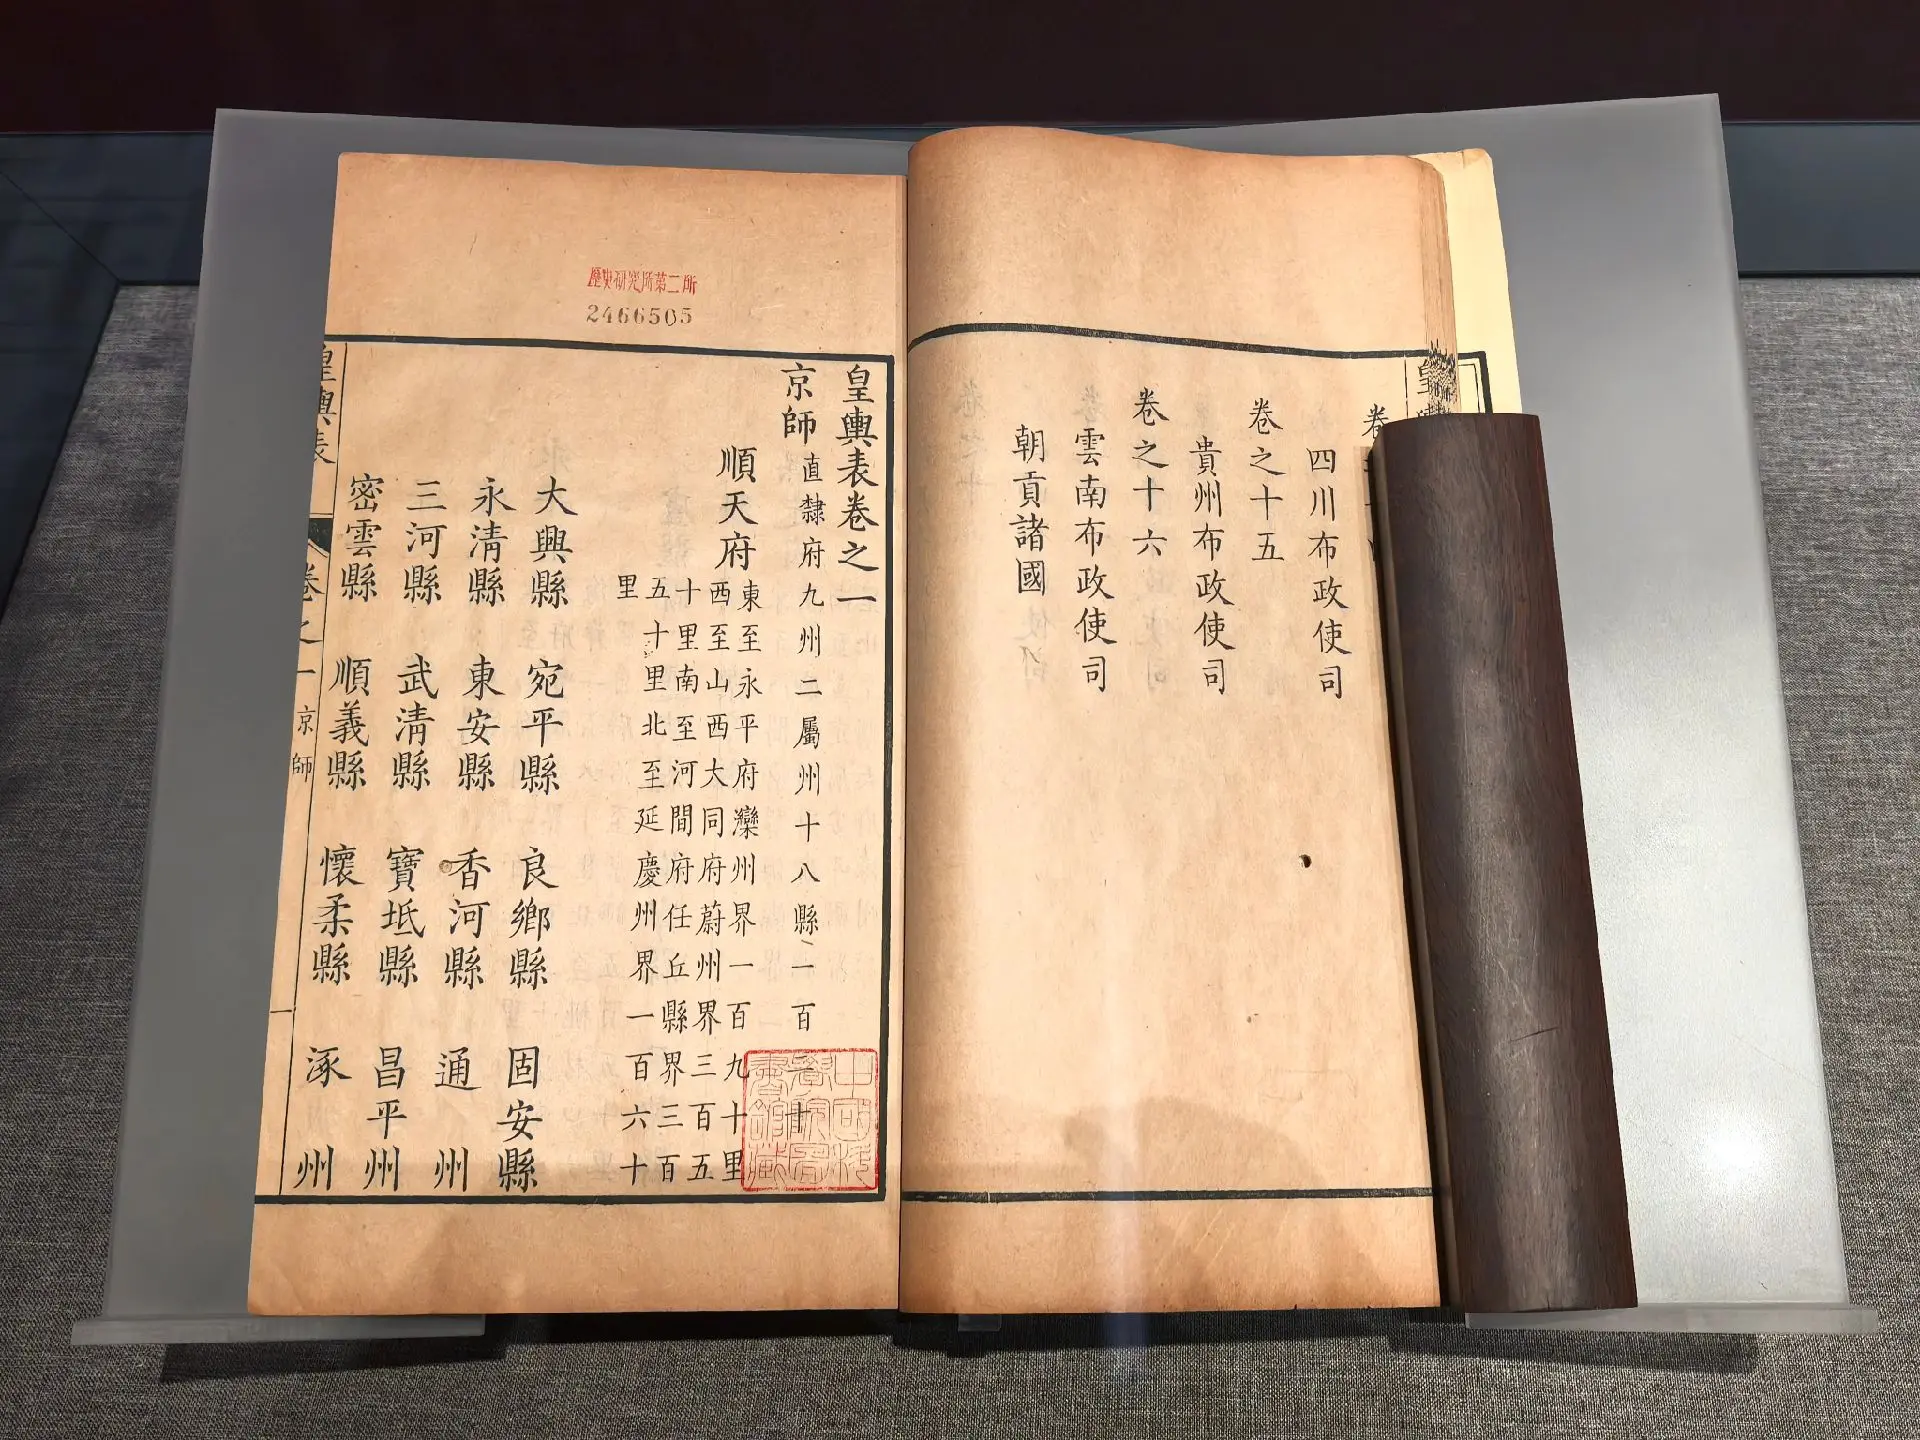 四川布政使司
卷之十五
貴州布政使司
卷之十六
雲南布政使司
朝貢諸國
歷史研究所第二所
2466505
皇輿表卷之一
京師直隸府九州二屬州十八縣一百
順天府
東至永平府灤州界一百九十里
西至山西大同府蔚州界三百五
十里南至河間府任丘縣界三百
五十里北至延慶州界一百六十
里
大興縣 宛平縣 良鄉縣 固安縣
永清縣 東安縣 香河縣 通州
三河縣 武清縣 寶坻縣 昌平州
密雲縣 順義縣 懷柔縣 涿州
皇輿表 卷之一 京師 一
中國科學院圖書館藏